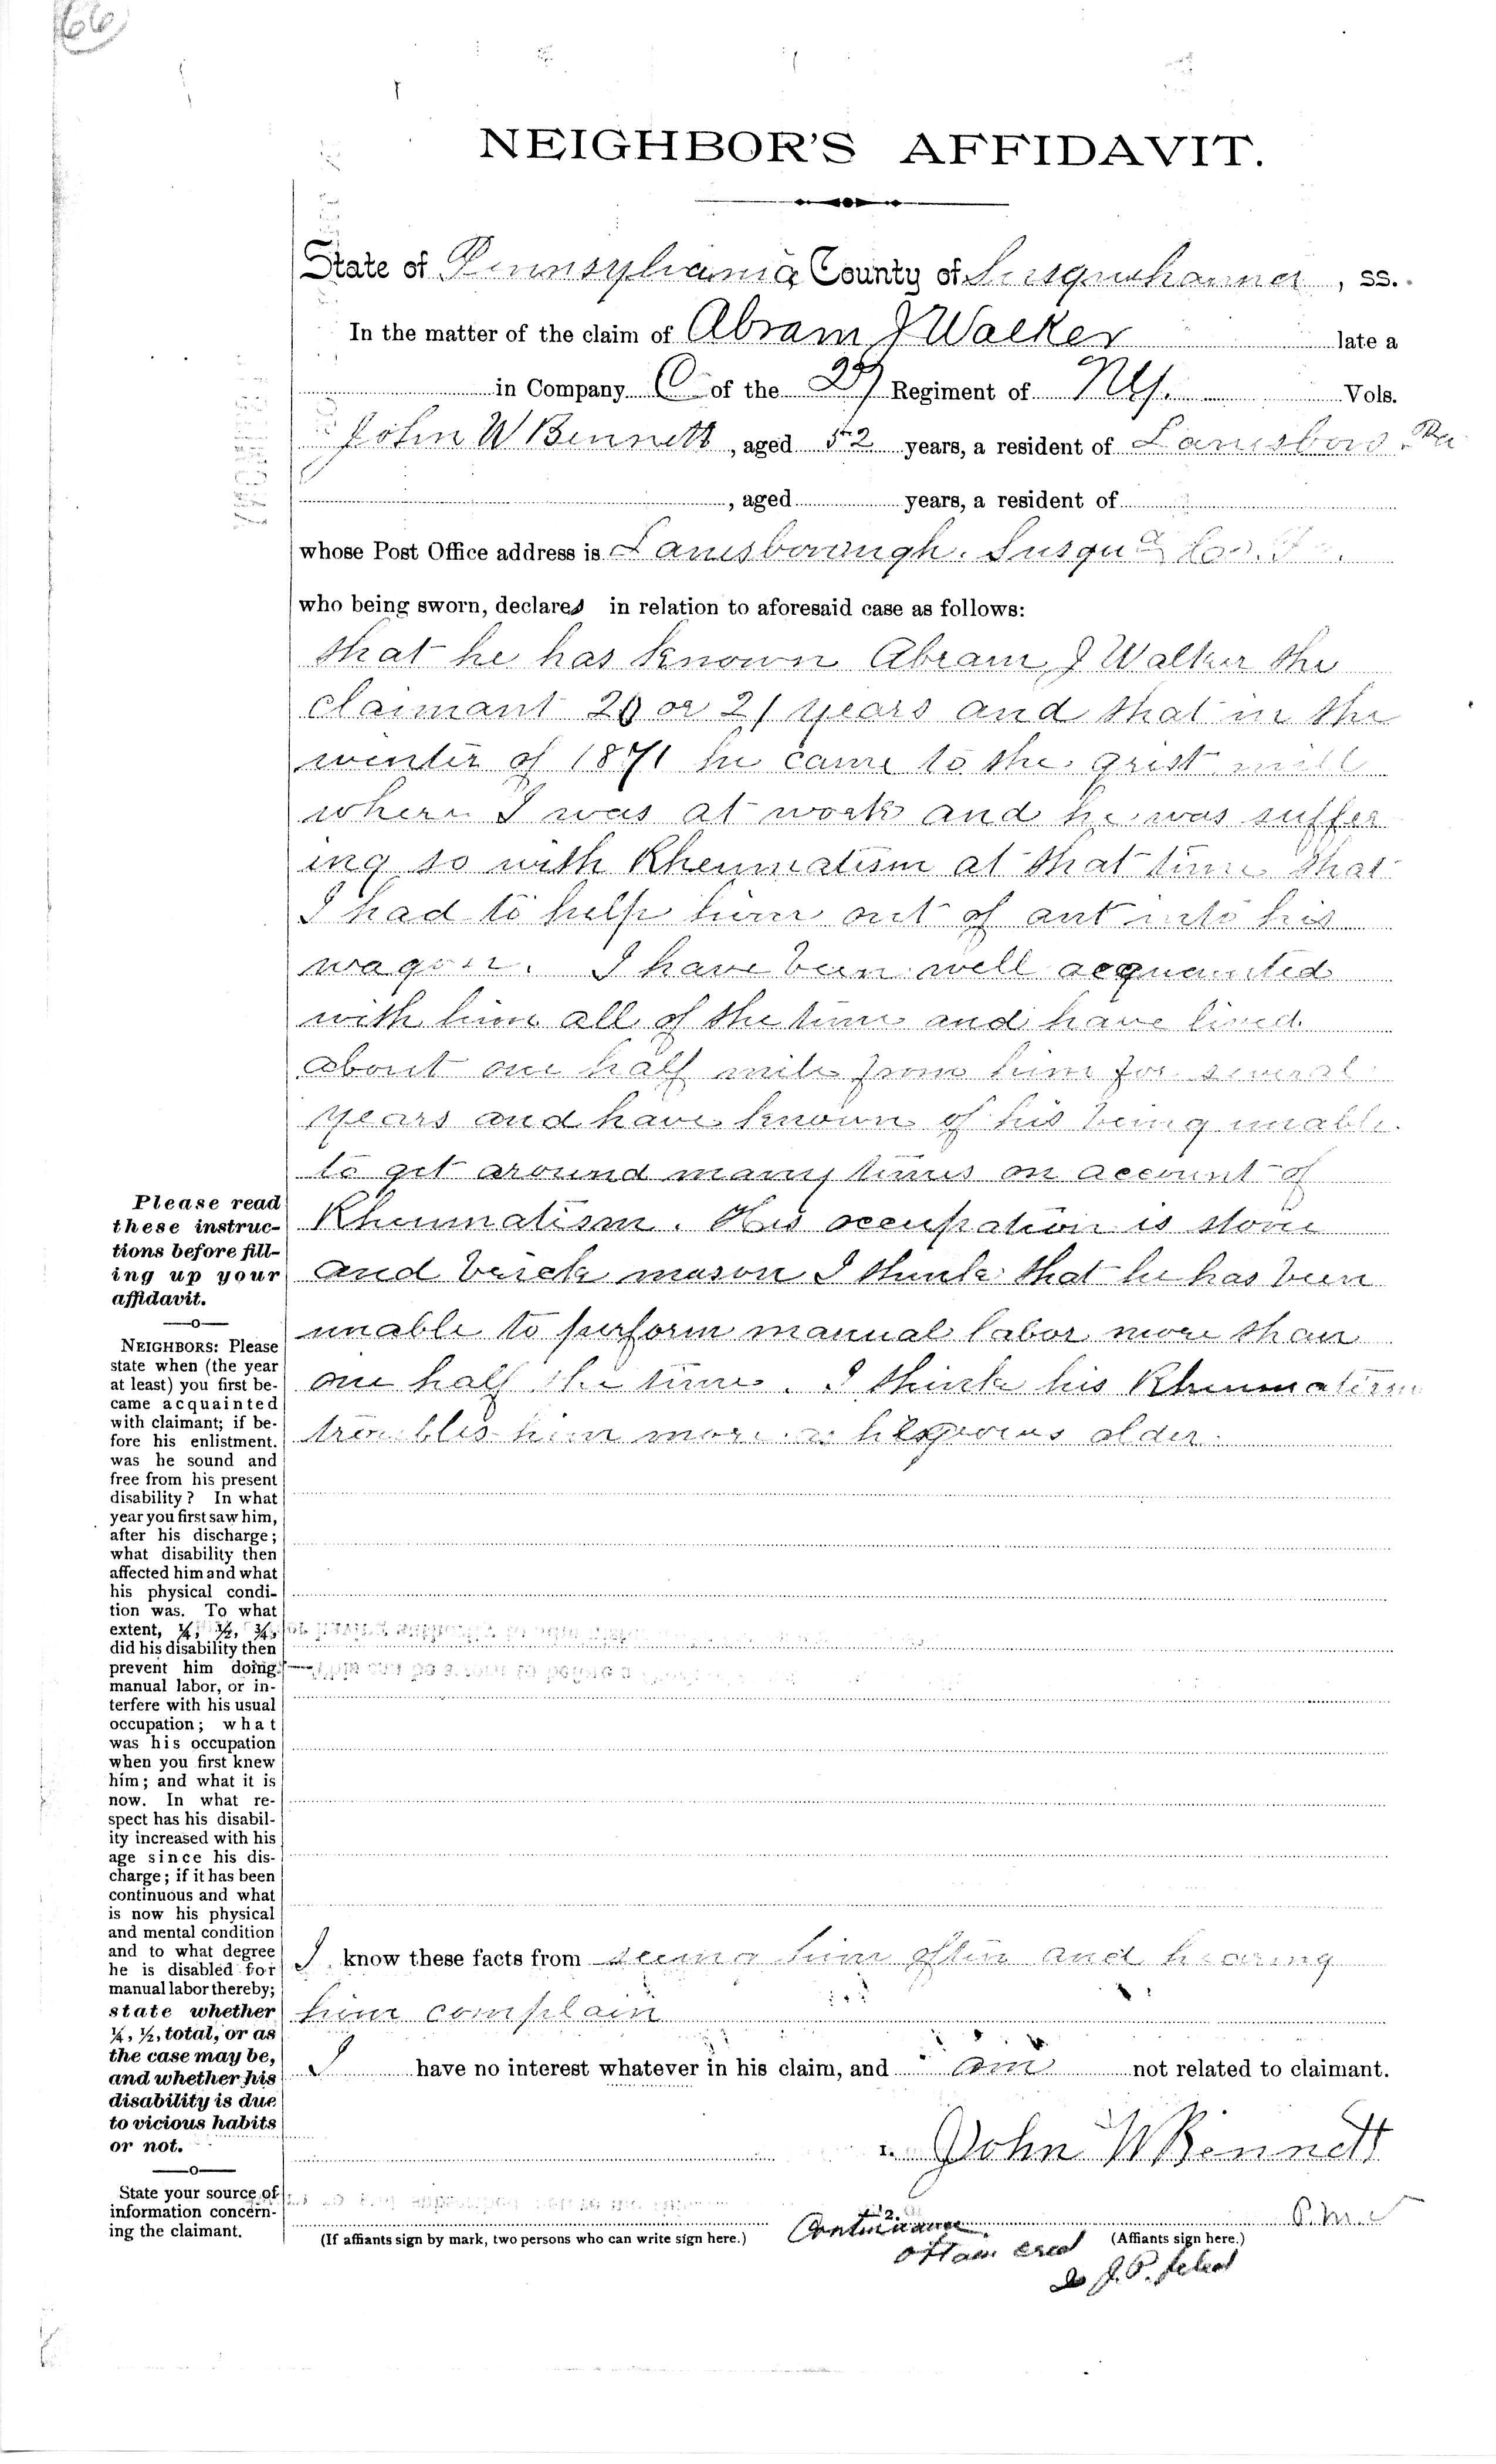 66
NEIGHBOR'S AFFIDAVIT.
State of Pennsylvania County of Susquehanna, ss.
In the matter of the claim of Abram J Walker late a
in Company C of the 27 Regiment of NY. Vols.
John W Bennett, aged 52 years, a resident of Lanesboro Pa
, aged years, a resident of
whose Post Office address is Lanesborough. Susqua Co. Pa.
who being sworn, declares in relation to aforesaid case as follows:
that he has known Abram J Walker the
claimant 20 or 21 years and that in the
winter of 1871 he came to the grist mill
where I was at work and he was suffer
ing so with Rheumatism at that time that
I had to help him out of ant into his
wagon. I have been well acquainted
with him all of the time and have lived
about one half mile from him for several
years and have known of his being unable
to get around many times on account of
Rheumatism. His occupation is stone
and brick mason I think that he has been
unable to perform manual labor more than
one half the time. I think his Rheumatism
troubles him more as he grows older.
Please read
these instruc-
tions before fill-
ing up your
affidavit.
NEIGHBORS: Please
state when (the year
at least) you first be-
came acquainted
with claimant; if be-
fore his enlistment.
was he sound and
free from his present
disability? In what
year you first saw him,
after his discharge;
what disability then
affected him and what
his physical condi-
tion was. To what
extent, ¼, ½, ¾,
did his disability then
prevent him doing
manual labor, or in-
terfere with his usual
occupation; what
was his occupation
when you first knew
him; and what it is
now. In what re-
spect has his disabil-
ity increased with his
age since his dis-
charge; if it has been
continuous and what
is now his physical
and mental condition
and to what degree
he is disabled for
manual labor thereby;
state whether
¼, ½, total, or as
the case may be,
and whether his
disability is due
to vicious habits
or not.
State your source of
information concern-
ing the claimant.
I know these facts from seeing him often and hearing
him complain
I have no interest whatever in his claim, and am not related to claimant.
1. John W Bennett
2.
(If affiants sign by mark, two persons who can write sign here.) Continuance (Affiants sign here.)